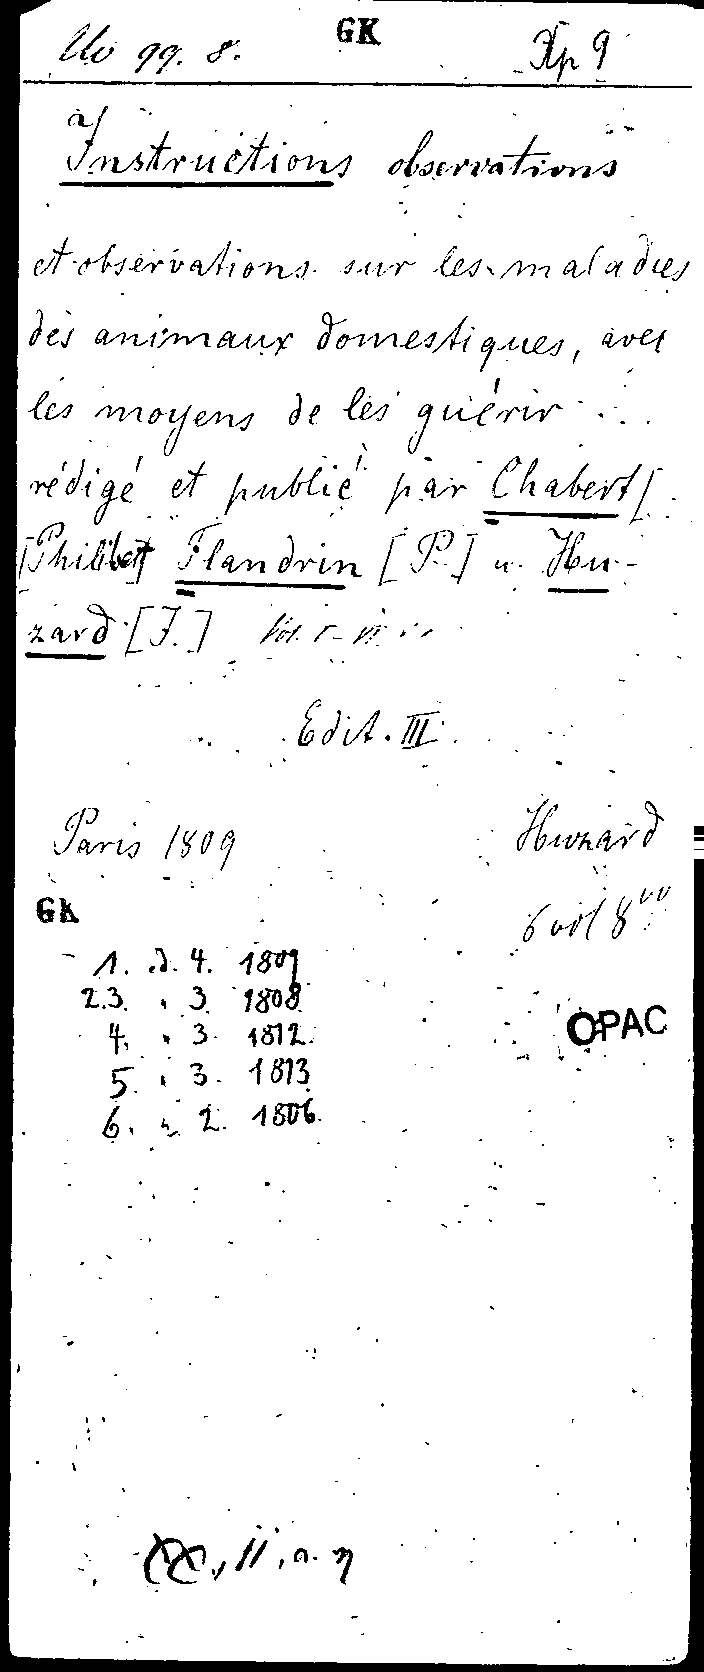 GK
Uv 99. 8. Xp 9
a/
Instructions observations
et observations sur les maladies
des animaux domestiques, avec
les moyens de les guérir ...
rédigé et publié par Chabert [
[Philibert] Flandrin [P.] u. Hu-
zard [J.] Vol. I-VI
Edit. III.
Paris 1809 Huzard
GK
6 vol 8vo
1. éd. 4. 1809
2.3. " 3 1808
4. " 3. 1812.
5. " 3. 1813
6. " 2. 1806.
OPAC